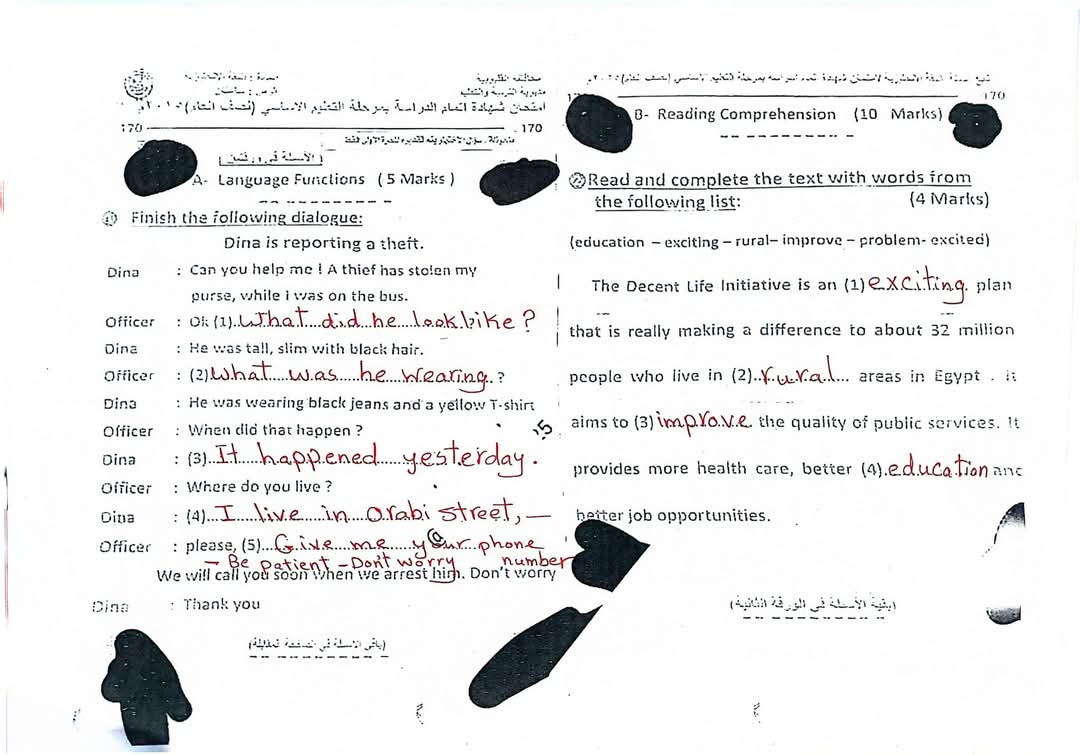 محافظة القليوبية
مديرية التربية والتعليم
امتحان شهادة اتمام الدراسة بمرحلة التعليم الاساسي (نصف العام) ٢٠١٥م
170
170
(الأسئلة في ورقتين)
A- Language Functions ( 5 Marks )
① Finish the following dialogue:
Dina is reporting a theft.
Dina : Can you help me ! A thief has stolen my
purse, while i was on the bus.
Officer : Ok (1).What...did...he...look like ?
Dina : He was tall, slim with black hair.
Officer : (2)What....was....he...wearing..?
Dina : He was wearing black jeans and a yellow T-shirt
Officer : When did that happen ?
Dina : (3)...It...happened.....yesterday.
Officer : Where do you live ?
Dina : (4)...I...live....in...Orabi street, —
Officer : please, (5)...Give...me....your phone
number
– Be patient – Don't worry
We will call you soon when we arrest him. Don't worry
Dina : Thank you
(باقي الاسئلة في الصفحة المقابلة)
170
B- Reading Comprehension (10 Marks)
② Read and complete the text with words from
the following list: (4 Marks)
(education – exciting – rural– improve – problem- excited)
The Decent Life Initiative is an (1) exciting. plan
that is really making a difference to about 32 million
people who live in (2)..rural... areas in Egypt . it
aims to (3) improve. the quality of public services. It
provides more health care, better (4).education and
better job opportunities.
(بقية الأسئلة في الورقة الثانية)